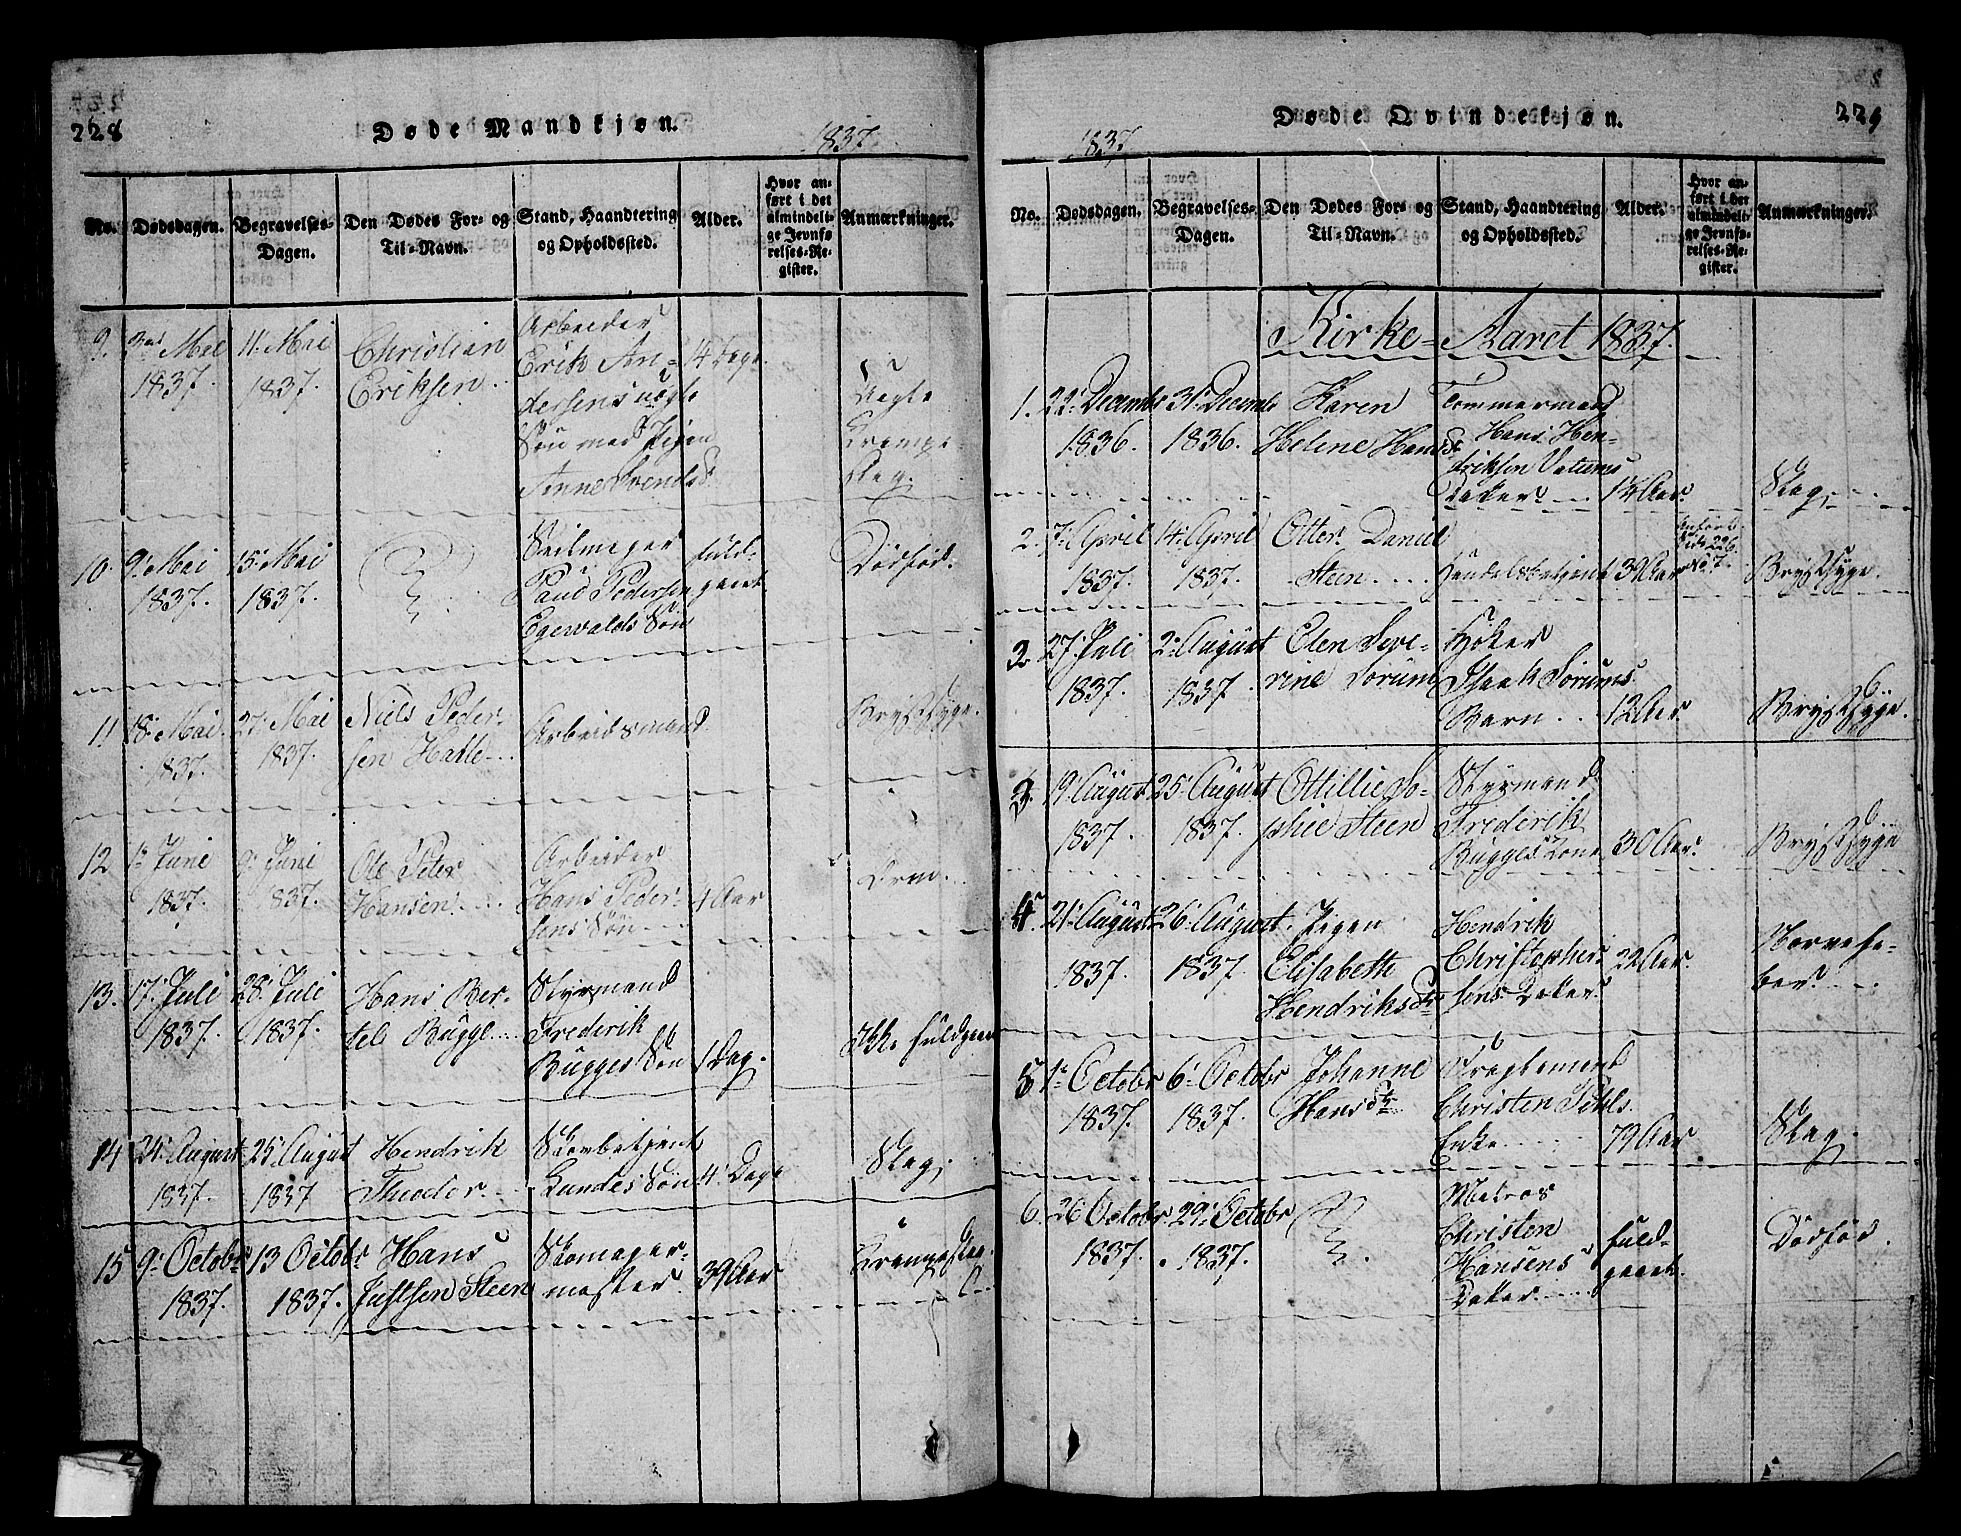 228
Døde Mandkjøn.
1837.
No.
Dødsdagen.
Begravelses-
Dagen.
Den Dødes For- og
Til-Navn.
Stand, Haandtering
og Opholdssted.
Alder.
Hvor an-
ført i det
almindeli-
ge Jevnfø-
relses-Re-
gister.
Anmærkninger.
9.
Mai
1837.
11. Mai
1837.
Christian
Eriksen
Arbeider
Erik An-
dersens
Søn med Pigen
Anne Svendsd.
4 Dage
Krampe-
slag.
10.
9. Mai
1837.
15. Mai
1837.
Seilmager
Paul Pedersen
Egewalds Søn
fuld-
gaaet.
Dødfød.
11
18. Mai
1837.
27. Mai
1837.
Niels Peder-
sen Halle
Arbeidsmand.
Brystsyge.
12
1. Juni
1837.
9. Juni
1837.
Ole Peter
Hansen
Arbeider
Hans Peder-
sens Søn
4 Aar
Orm.
13.
17. Juli
1837.
28. Juli
1837.
Hans Ber-
tel Bugge
Styrmand
Frederik
Bugges Søn
1 Dag.
Ikke fuldgaaen
14
21. August
1837.
25. August
1837
Hendrik
Theodor
Lundes Søn
4 Dage
Slag.
15
9. Octobr
1837.
13 Octobr
1837.
Hans
Justsen Steen
Skomager-
mester
39 Aar
Krampeslag.
Døde Qvindekjøn.
229
1837
No.
Dødsdagen.
Begravelses-
Dagen.
Den Dødes For- og
Til-Navn.
Stand, Haandtering
og Opholdssted.
Alder.
Hvor an-
ført i det
almindeli-
ge Jevnfø-
relses-Re-
gister.
Anmærkninger.
Kirke-Aaret 1837.
1.
22. Decembr
1836.
31. Decembr
1836.
Karen
Helene Hansd.
Tømmermand
Hans Hen-
driksen
Datter
Slag.
2.
7. April
1837.
14. April
1837.
Daniel
Steen
Handelsbetjent
39 Aar
Anført
Side 226
No 7.
Brystsyge.
2.
27. Juli
1837.
2. August
1837.
Elen Seve-
rine Sørum
Høker
Isaak Sørums
Barn
12 Aar
Brystsyge.
3.
19. August
1837.
25. August
1837.
Ottillie So-
phie Steen
Styrmand
Frederik
Bugges Kone
30 Aar.
Brystsyge
4.
21. August
1837.
26. August
1837
Pigen
Elisabeth
Hendriksdr
Hendrik
Christopher-
sens Datter
22 Aar.
Nervefe-
ber.
5
1. Octobr
1837.
6. Octobr
1837.
Johanne
Hansdr
Christen
Enke
79 Aar
Slag.
6.
26 Octobr.
1837.
29. Octobr
1837.
Matros
Christen
Hansens
Datter
fuld-
gaaet.
Dødfød.